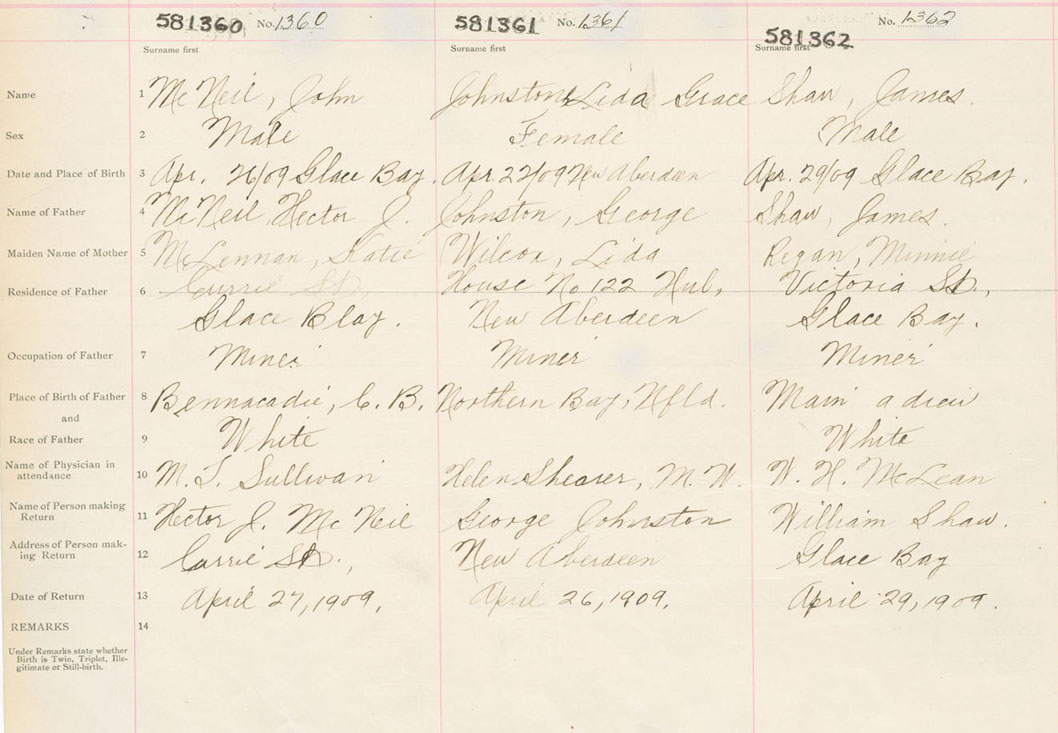 581360 No. 1360 581361 No. 1361 581362 No. 1362
Surname first Surname first Surname first
Name 1 McNeil, John Johnstone Lida Grace Shaw, James.
Sex 2 Male Female Male
Date and Place of Birth 3 Apr. 26/09 Glace Bay. Apr 22/09 New Aberdeen Apr. 29/09 Glace Bay.
Name of Father 4 McNeil Hector J. Johnston, George Shaw, James.
Maiden Name of Mother 5 McLennan, Katie Wilcox, Lida Regan, Minnie
Residence of Father 6 Currie St. House No 122 Hub, Victoria St.,
Glace Blay. New Aberdeen Glace Bay.
Occupation of Father 7 Miner Miner Miner
Place of Birth of Father 8 Bennacadie, C. B. Northern Bay, Nfld. Main adieu
and
Race of Father 9 White White
Name of Physician in
attendance 10 M. T. Sullivan Helen Shearer, M. W. W. H. McLean
Name of Person making
Return 11 Hector J. McNeil George Johnston William Shaw.
Address of Person mak-
ing Return 12 Currie St., New Aberdeen Glace Bay
Date of Return 13 April 27, 1909. April 26, 1909. April 29, 1909.
REMARKS 14
Under Remarks state whether
Birth is Twin, Triplet, Ille-
gitimate or Still-birth.